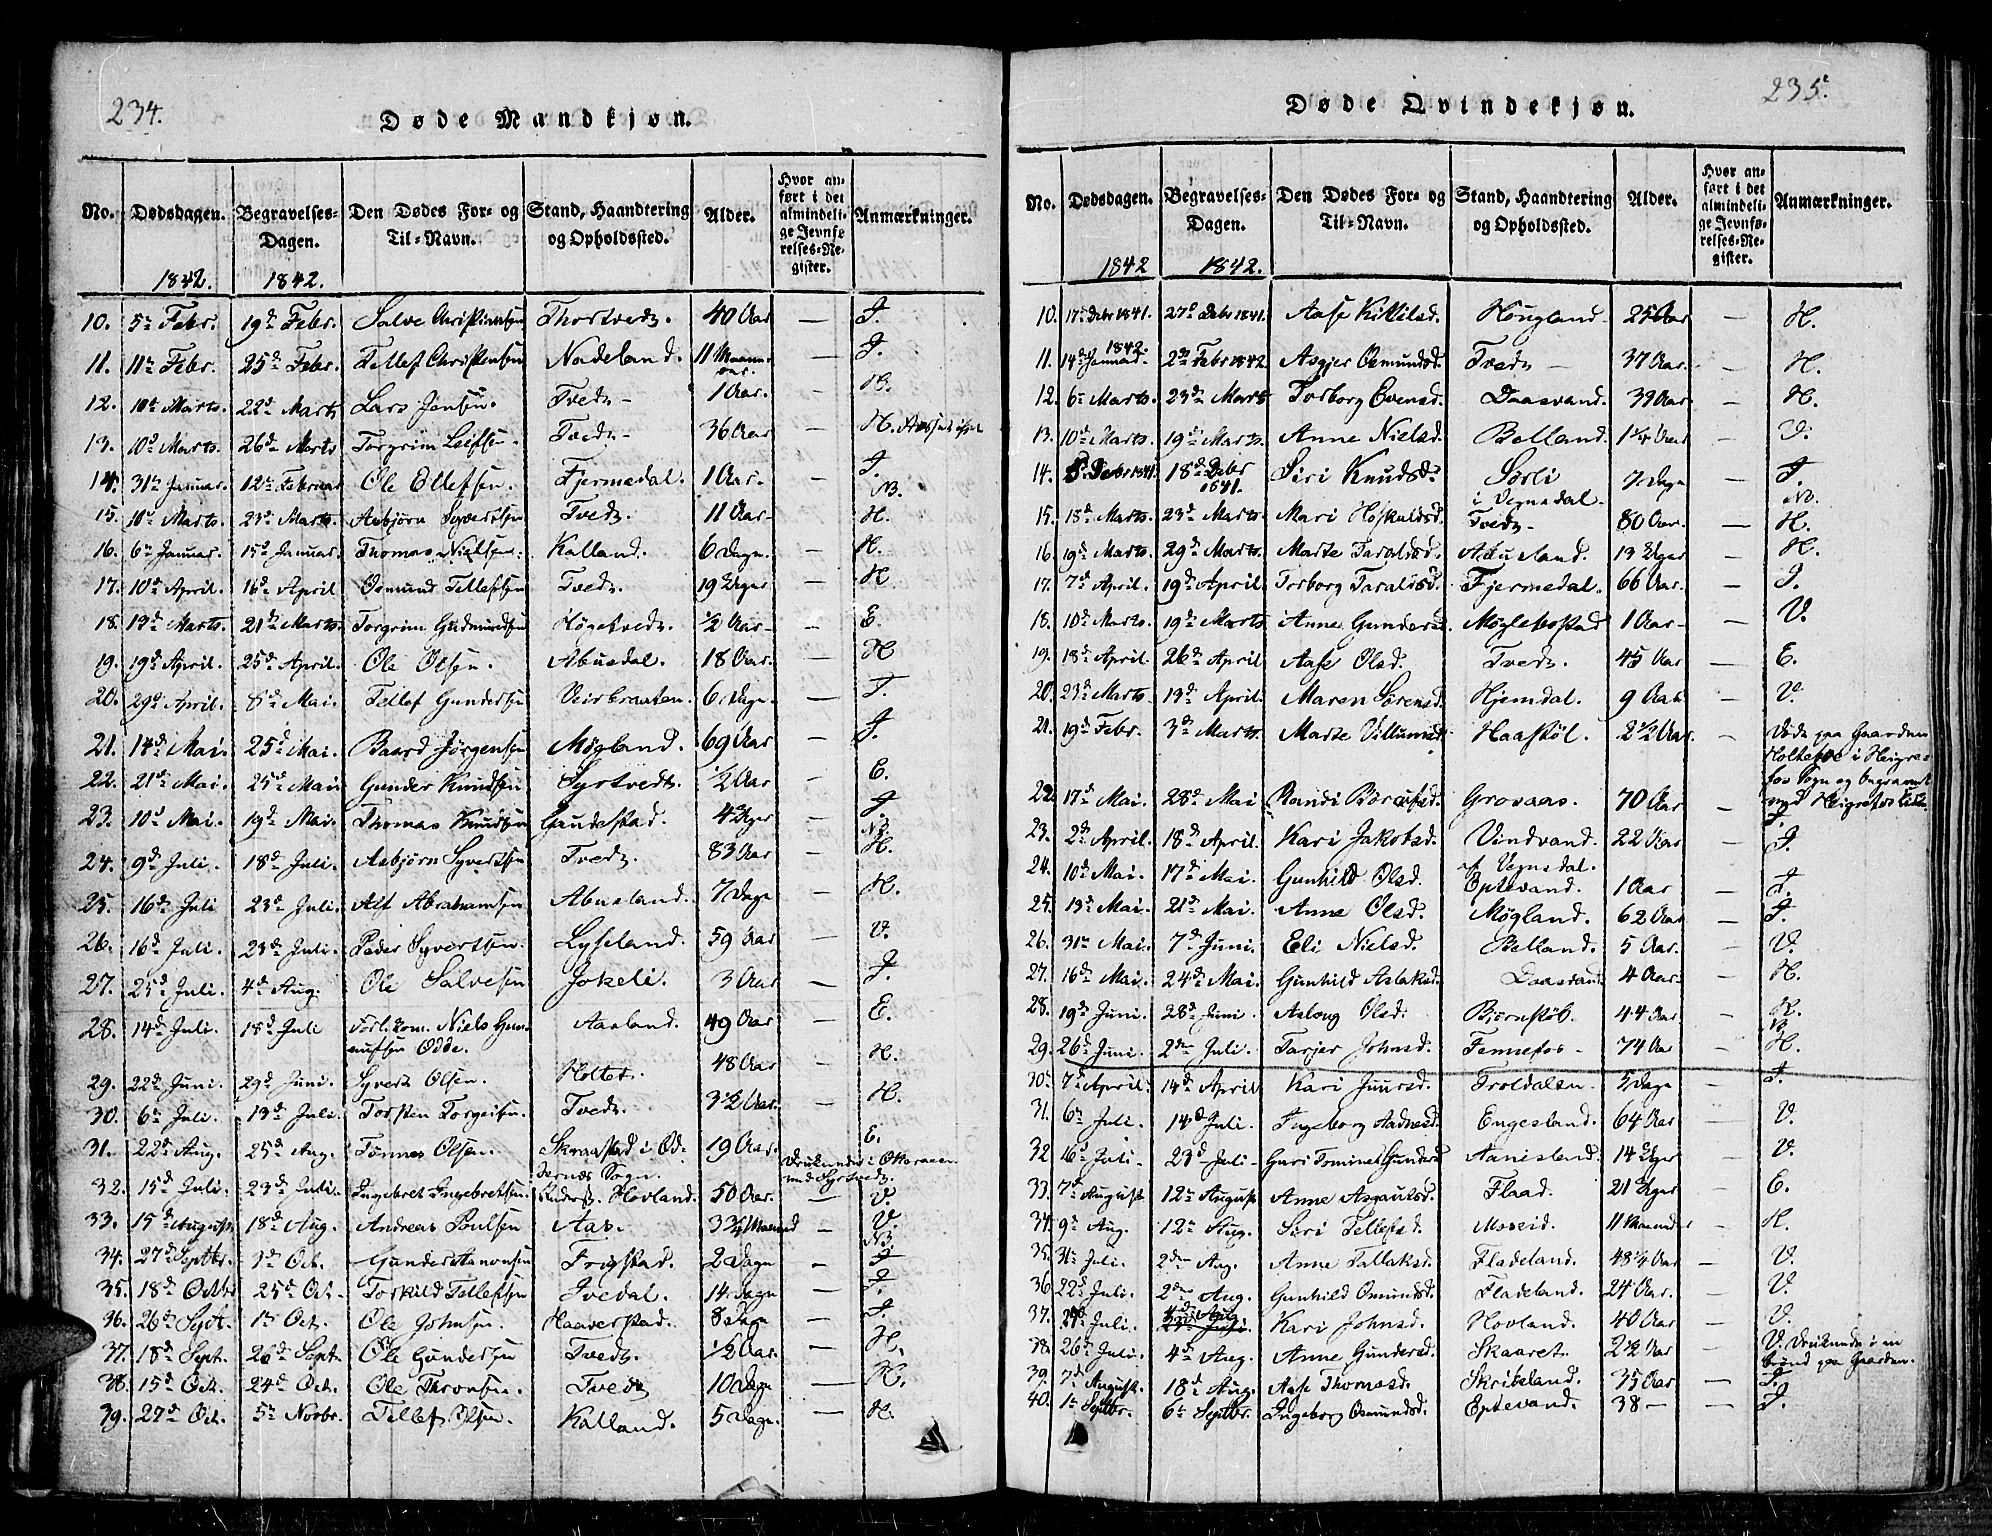 234.
Døde Mandkjøn.
No. Dødsdagen. Begravelses-Dagen. Den Dødes For- og Til-Navn. Stand, Haandtering og Opholdssted. Alder. Hvor anført i det almindelige Jevnførelses-Register. Anmærkninger.
1842. 1842.
10. 5te Febr. 19d Febr. Salve Christensen Thortvedt. 40 Aar — J.
11. 11te Febr. 25d Febr. Tellef Christensen Nadeland. 11 — J.
12. 10d Marts. 22d Marts Lars Jensen. Tvedt 1 Aar. — B.
13. 10d Marts. 26d Marts Torgrim Leifsen. Tvedt 36 Aar — H.
14. 31te Januar. 12te Februar Ole Ellefsen Fjermedal. 1 Aar. — J.
15. 10d Marts. 23d Marts. Asbjørn Syvertsen Tvedt. 11 Aar — NB. H.
16. 6te Januar. 15d Januar. Thomas Nielsen. Kalland. 6 Dage. — H.
17. 10d April. 16d April Osmund Tellefsen Tvedt. 19 Uger — H
18. 13d Marts. 21d Marts. Torgrim Gudmundsen Høgetvedt. 1/2 Aar — E.
19. 19d April. 25d April. Ole Olsen. Abusdal. 18 Aar. — H
20. 29d April. 8d Mai. Tellef Gundersen Veirbraaten. 6 Dage. — J.
21. 14d Mai. 25d Mai. Baard Jørgensen Møgland. 69 Aar — J.
22. 21d Mai. 25d Mai Gunder Knudsen Syrtvedt. 1/2 Aar — E.
23. 10d Mai. 19d Mai. Thomas Knudsen Gaudestad. 4 Uger — J.
24. 9d Juli. 18d Juli. Asbjørn Syvertsen Tvedt. 83 Aar — NB. H.
25. 16d Juli 23d Juli. Alf Abrahamsen Abusland. 7 Dage — H.
26. 16d Juli. 23d Juli. Peder Syvertsen. Lyseland. 59 Aar — V.
27. 25d Juli. 4d Aug. Ole Salvesen Jokeli. 3 Aar — J.
28. 14d Juli. 18d Juli Niels Gunnufsen Odde. Aasland. 49 Aar — E.
29. 22d Juni. 29d Juni. Syvert Olsen. Holtet. 48 Aar — H.
30. 6te Juli. 13d Juli. Torsten Torgeisen. Tvedt. 3 1/2 Aar. — H.
31. 22d Aug. 25d Aug. Tønnes Olsen. Skraastad i Oddernæs Sogn. 19 Aar E. Druknede i Otteraaen ved Syrtvedt.
32. 15d Juli. 23d Juli. Ingebret Ingebretsen. Hovland. 50 Aar. V.
33. 15d August. 18d Aug. Andreas Poulsen Aas. 3 3/4 Maaned — V.
34. 27d Septbr. 3d Oct. Gunder Aanonsen Frigstad. 2 Dage — NB. J
35. 18d Octbr 25d Oct. Torkild Tellefsen Ivedal. 14 Dage — J.
36. 26d Sept. 1te Oct. Ole Johnsen. Haaverstad. 8 Dage — J.
37. 18d Sept. 26d Sept. Ole Gundersen Tvedt. 1/2 Aar. — H.
38. 15d Oct. 24d Oct. Ole Thronsen. Tvedt 10 Dage — H.
39. 27d Oct. 5te Novbr. Tellef Olsen. Kalland. 5 Dage. — H.
235.
Døde Qvindekjøn.
No. Dødsdagen. Begravelses-Dagen. Den Dødes For- og Til-Navn. Stand, Haandtering og Opholdssted. Alder. Hvor anført i det almindelige Jevnførelses-Register. Anmærkninger.
1842 1842.
10. 17d Debr 1841. 27d Debr 1841. Aase Kittilsd. Hougland. 25 Aar — H.
11. 14d Januar 1842. 2den Febr 1842. Asgjer Osmundsd. Tvedt — 37 Aar. — H.
12. 6te Marts. 23d Marts Torborg Evensd. Daasvand. 39 Aar — H.
13. 10d Marts. 19d Marts. Anne Nielsd. Belland. 1 1/4 Aar — V.
14. 8. Debr 1841. 18d Debr 1841. Siri Knudsd. Sørli i Vegusdal. 7 Dage — J.
15. 18d Marts. 23d Marts. Mari Høskuldsd. Tvedt 80 Aar. — NB. H.
16. 19d Marts. 29d Marts. Marte Taraldsd. Abusland. 13 Uger — H.
17. 7d April. 19d April. Torborg Taraldsd. Fjermedal. 66 Aar. — J.
18. 10d Marts. 19d Marts Anne Gundersd. Møglebostad 1 Aar — V.
19. 18d April. 26d April Aase Olsd. Tvedt. 45 Aar — E.
20. 23d Marts 13d April. Maren Sørensd. Hjemdal. 9 Aar — V.
21. 19d Febr. 3d Marts. Marte Villumsd. Haaskøl. 2 1/2 Aar. — Døde paa Gaarden i Heigrefos Sogn og begravet ved Heigrefos Kirke
22. 17d Mai. 28d Mai Randi Grovaas. 70 Aar — J.
23. 2den April. 18d April. Kari Jakobsd. Vindvand. 22 Aar — J.
24. 10d Mai. 17d Mai. Gunhild Olsd. af Vegusdal. Eptevand. 1 Aar — J.
25. 13d Mai. 21d Mai. Anne Olsd. Møgland. 62 Aar — J.
26. 31te Mai. 7d Juni. Eli Nielsd. Belland. 5 Aar. — V.
27. 16d Mai. 24d Mai. Gunhild Aslaksd. Daasvand 4 Aar. — H.
28. 19d Juni. 28d Juni. Aslaug Olsd. Bjørnstøb. 44 Aar — H.
29. 26d Juni. 2den Juli. Tarjer Johnsd. Fennefos — 74 Aar — NB. H.
30. 7d April. 14d April Kari Juursd. Troldalen. 5 Dage — J.
31. 6te Juli. 14d Juli. Ingeborg Aadnesd. Engesland. 64 Aar — V.
32 16d Juli. 23d Juli. Guri Tomine Gundersd Aanesland. 14 Uger — V.
33. 7d August. 12te August Anne Asgautsd. Flaad. 21 Uger — E.
34. 9d Aug. 12te Aug. Siri Tellefsd. Moseid. 11 Maaneder — H.
35. 31te Juli. 2den Aug. Anne Tallaksd. Fladeland. 48 1/4 Aar — V.
36 22d Juli. 2den Aug. Gunhild Osmundsd. Fladeland. 24 Aar. — V.
37. 27d Juli. 4d Aug Kari Johnsd. Hovland. 40 Aar — V.
38. 26d Juli. 4d Aug. Anne Gundersd. Skaaret. 2 1/2 Aar — V. Druknede i en brønd paa Gaarden.
39. 7d August. 18d Aug. Aase Thomasd. Skribeland. 35 Aar — J.
40. 1te Septbr. 6te Septbr. Ingeborg Osmundsd. Eptevand. 38 — — J.